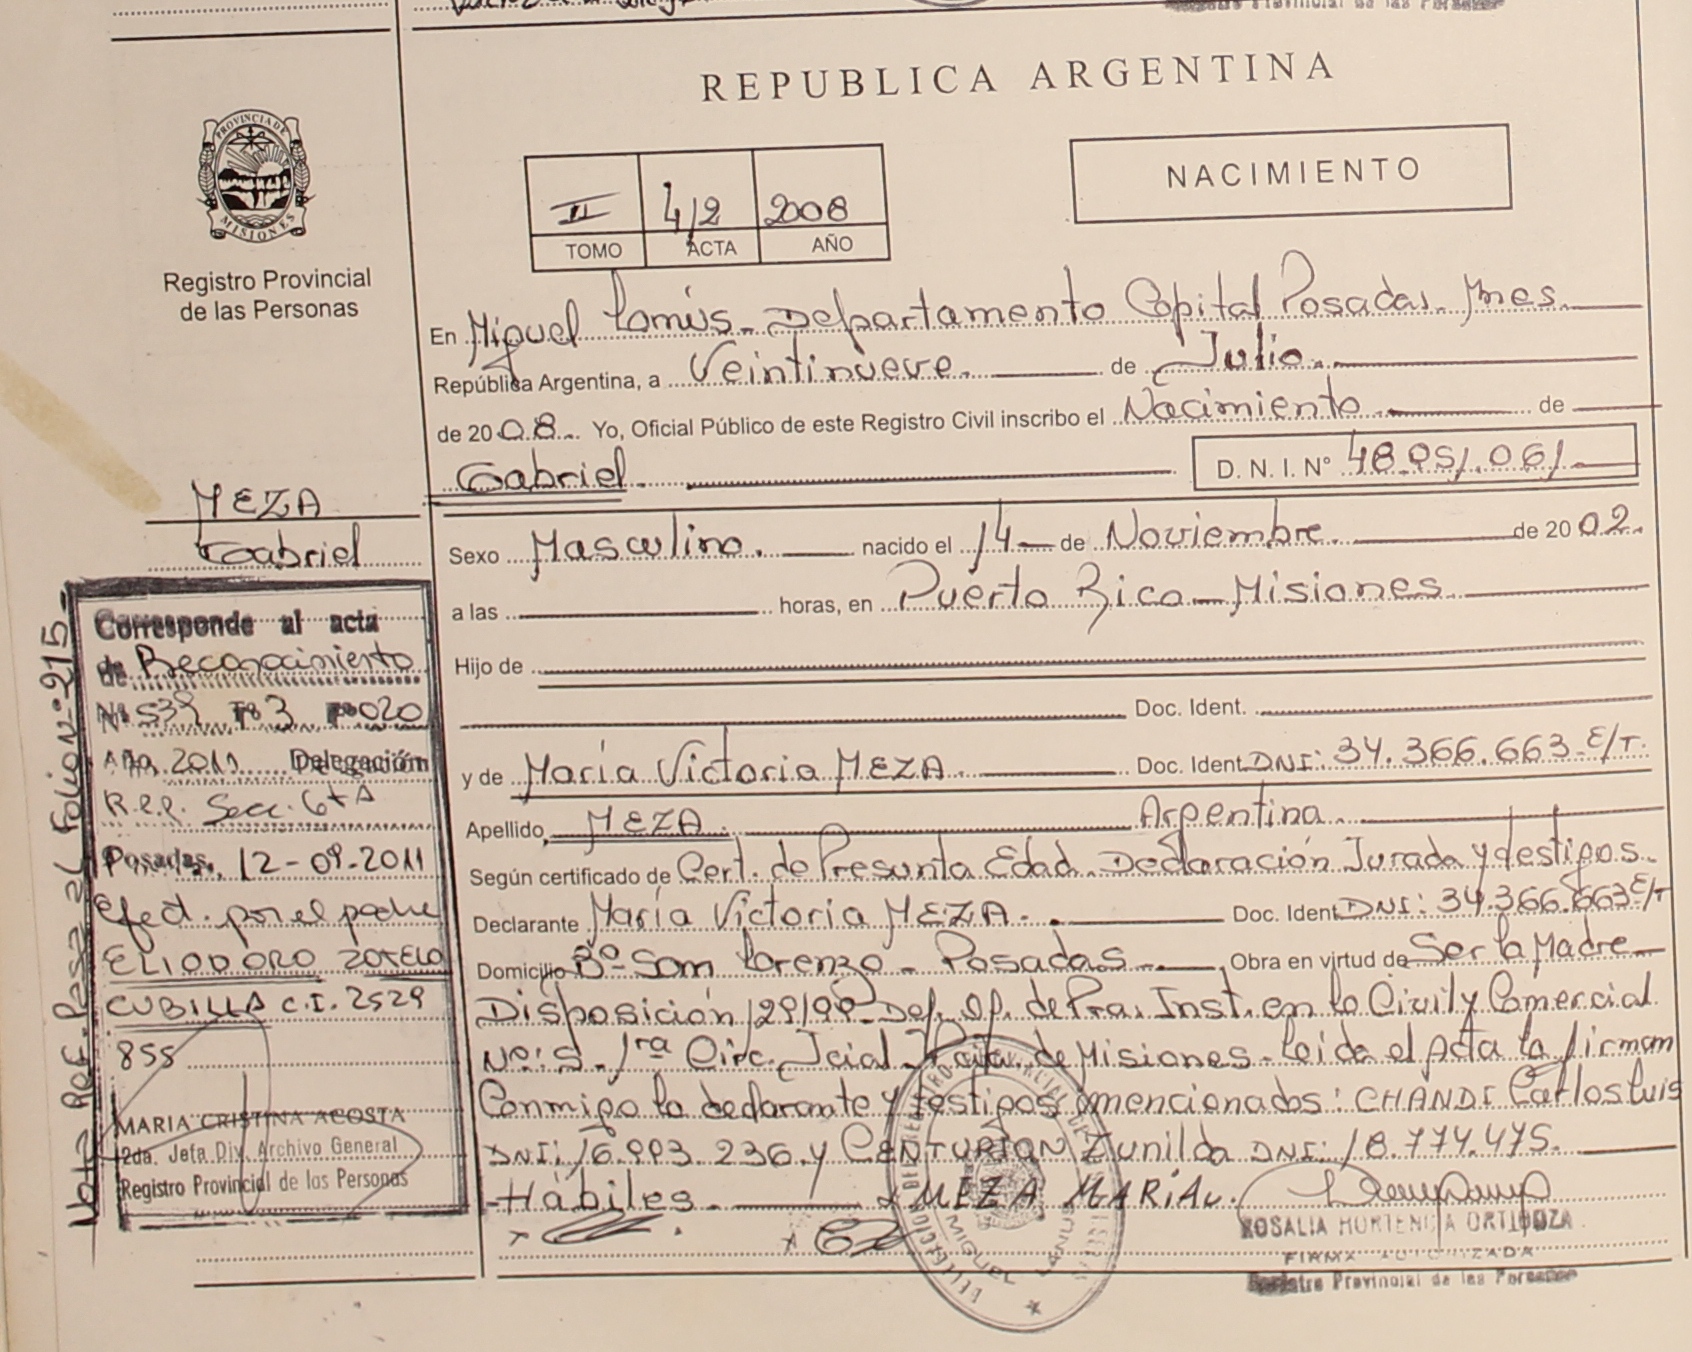 REPUBLICA ARGENTINA
PROVINCIA DE
MISIONES
Registro Provincial
de las Personas
II 412 2008
TOMO ACTA AÑO
NACIMIENTO
En Miguel Lanús - Departamento Capital Posadas - Mnes.
República Argentina, a Veintinueve. de Julio.
de 2008. Yo, Oficial Público de este Registro Civil inscribo el Nacimiento. de
Gabriel. D.N.I. Nº 48.051.061.
MEZA
Gabriel
Sexo Masculino. nacido el 14 de Noviembre. de 2002.
a las horas, en Puerto Rico - Misiones.
Hijo de
Doc. Ident.
y de María Victoria MEZA. Doc. Ident. DNI: 34.366.663 E/T.
Apellido MEZA. Argentina.
Según certificado de Cert. de Presunta Edad. Declaración Jurada y testigos.
Declarante María Victoria MEZA. Doc. Ident. DNI: 34.366.663 E/T
Domicilio Bº San Lorenzo - Posadas. Obra en virtud de Ser la Madre
Disposición 129/99 - Def. Of. de Pra. Inst. en lo Civil y Comercial
Nº: 5. 1ra Circ. Jcial. de Misiones - Leida el Acta la firman
Conmigo la declarante y testigos mencionados: CHANDI Carlos Luis
DNI: 16.993.236. y CENTURION Zunilda DNI: 18.774.475.
Hábiles. MEZA MARIA V.
ROSALIA HORTENCIA
FIRMA AUTORIZADA
Registro Provincial de las Personas
MIGUEL LANUS
Nota Ref. Pasa al Folio Nº 215-
Corresponde al acta
de Reconocimiento
Nº 539 Tº 3 Fº 020
Año 2011 Delegación
R.P.P. Secc. 6tA
Posadas, 12-09-2011
Efect. por el padre
ELIODORO ZOTELO
CUBILLA C.I. 2529
855
MARIA CRISTINA ACOSTA
2da. Jefa Div. Archivo General
Registro Provincial de las Personas